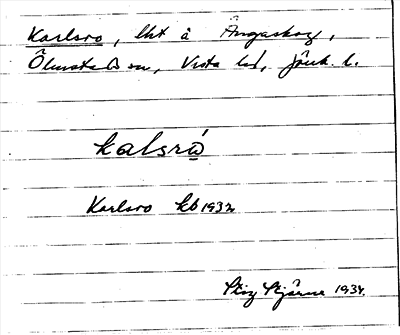 Karlsro, lht å Ängaskog,
Ölmstads sn, Vista hd, Jönk. l.
kalsró
Karlsro kb 1932
Stig Stjärne 1934.